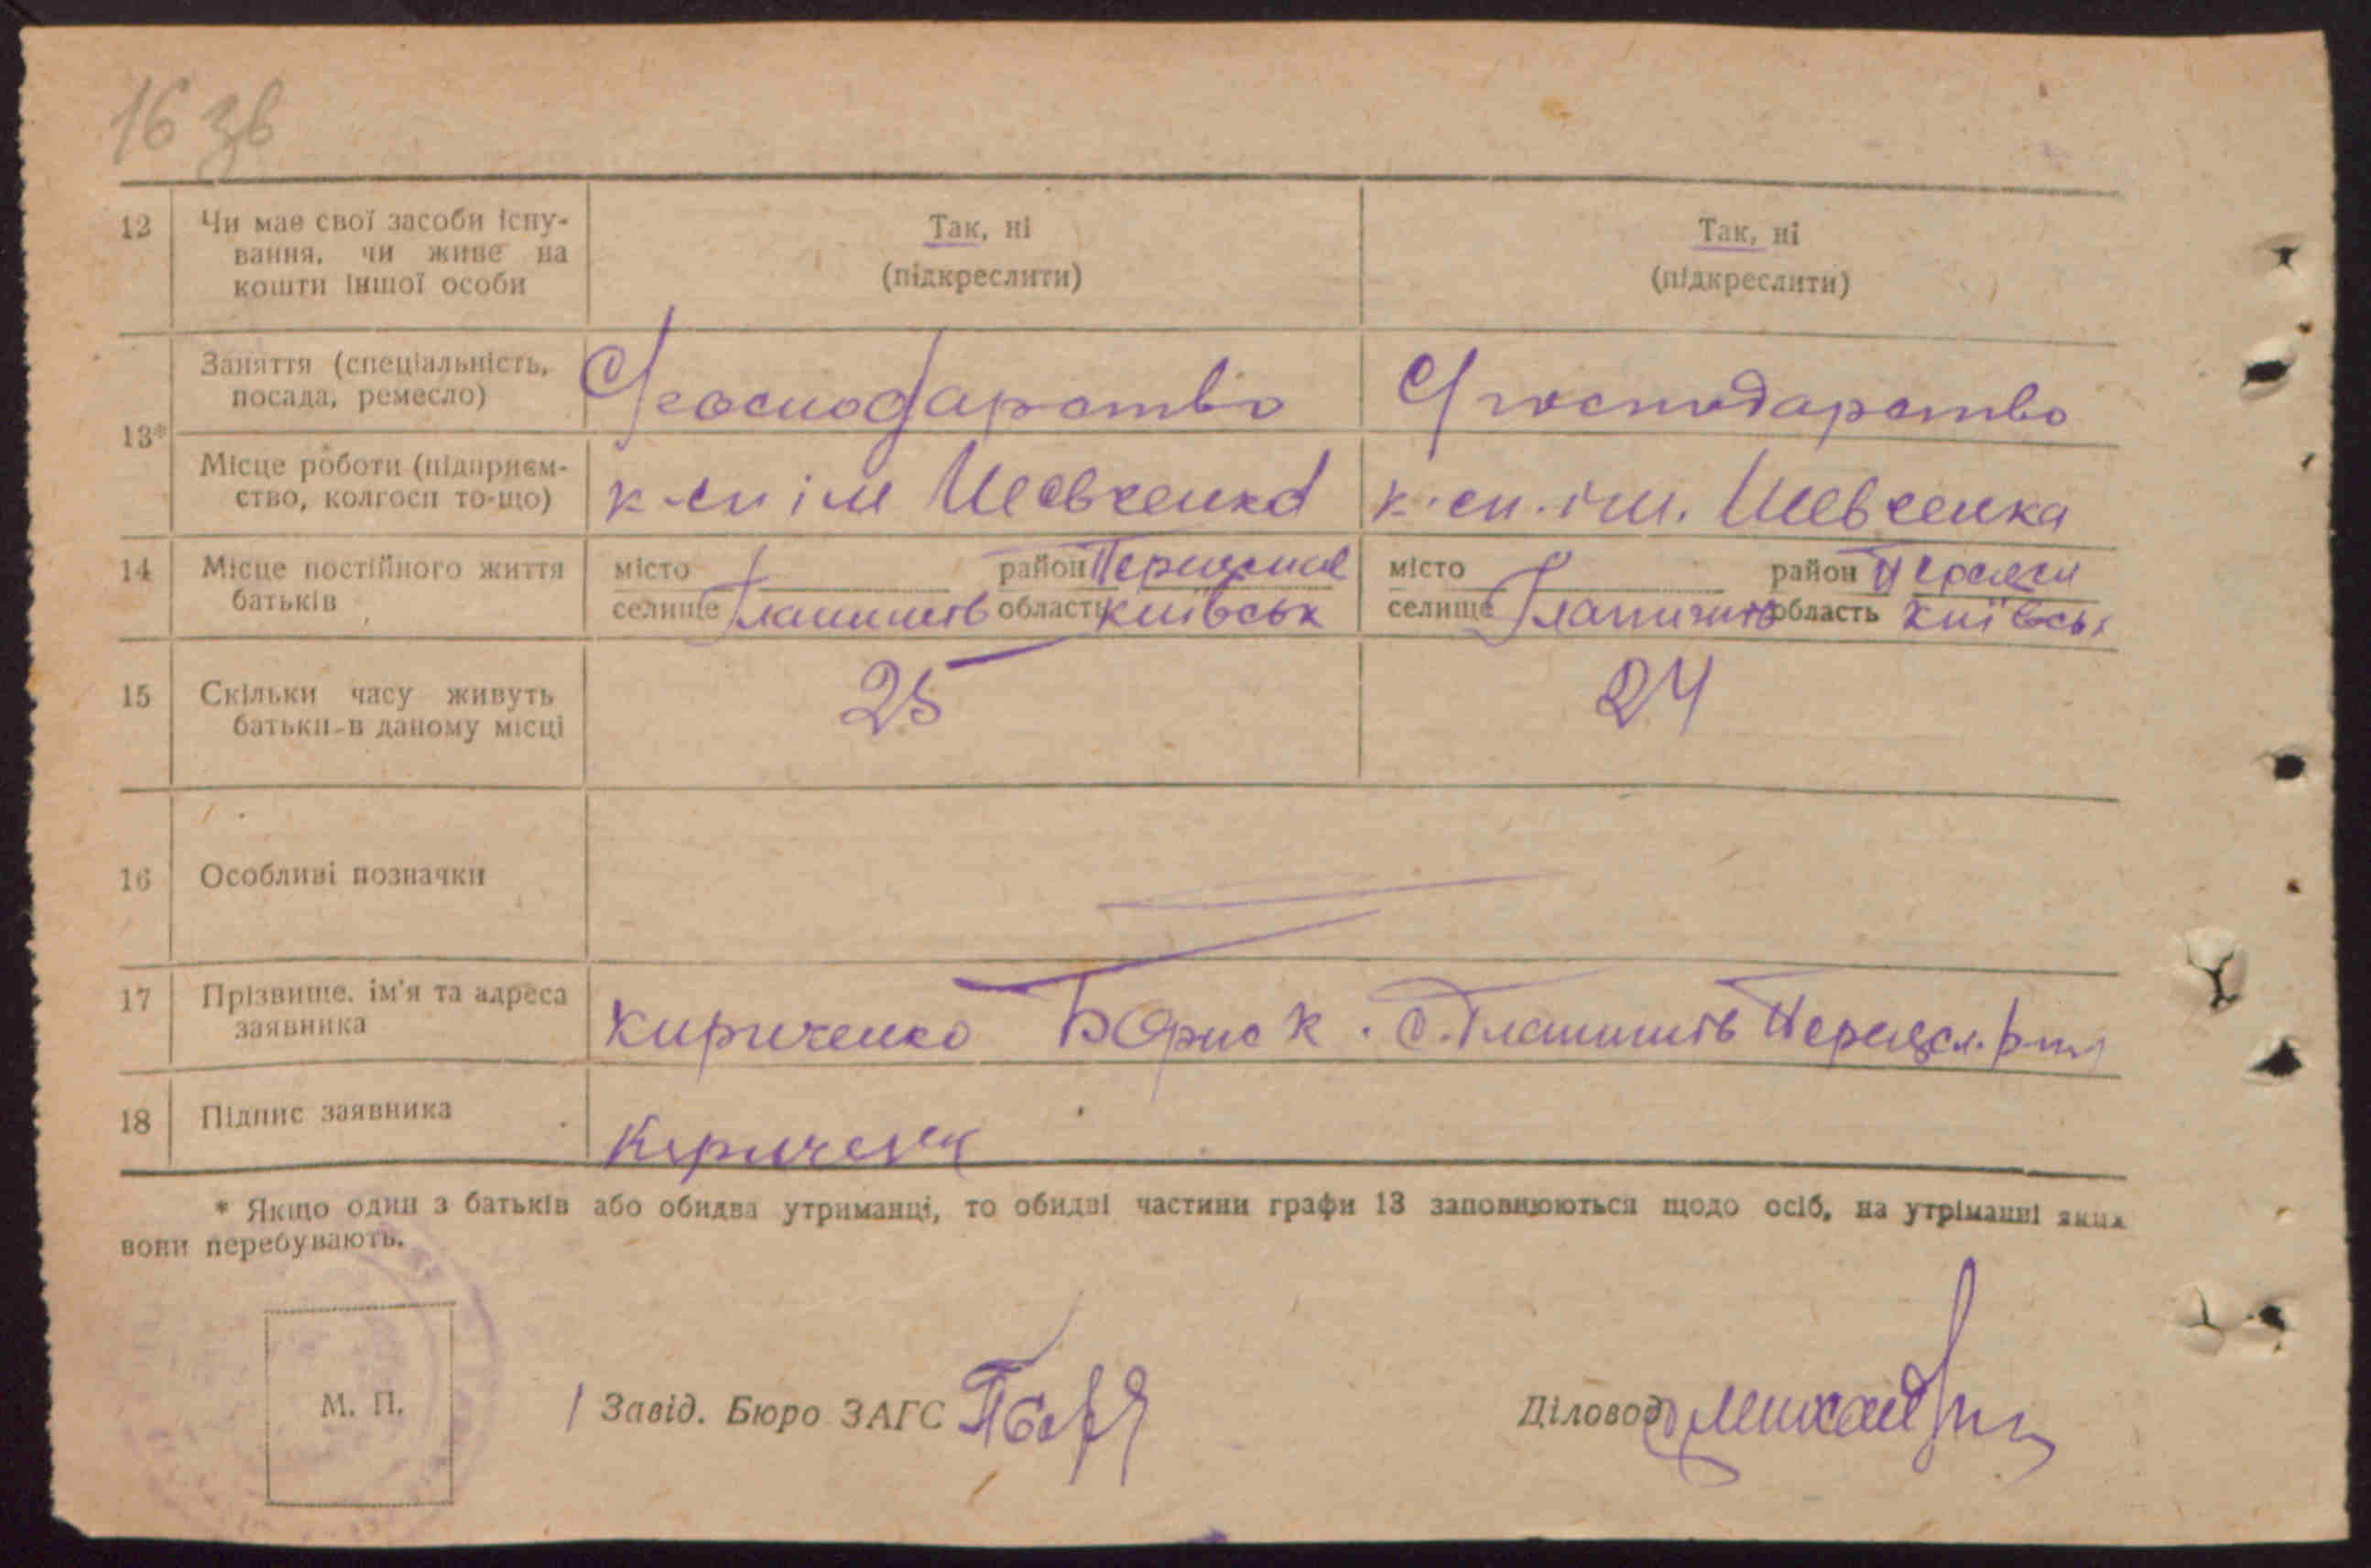 16 зв
12 Чи має свої засоби існу-
вання, чи живе на
кошти іншої особи
Так, ні
(підкреслити)
Так, ні
(підкреслити)
13*
Заняття (спеціальність,
посада, ремесло)
С/господарство
С/господарство
Місце роботи (підприєм-
ство, колгосп то-що)
к-сп ім Шевченка
к-сп. ім. Шевченка
14 Місце постійного життя
батьків
місто район Переяслав
селище Гланишів область Київськ
місто район Переясл
селище Гланишів область Київськ
15 Скільки часу живуть
батьки в даному місці
25
24
16 Особливі позначки
17 Прізвище, ім'я та адреса
заявника
Кириченко Борис К. с. Гланишів Переясл. р-н
18 Підпис заявника
Кириченк
* Якщо один з батьків або обидва утриманці, то обидві частини графи 13 заповнюються щодо осіб, на утріманні яких
вони перебувають.
М. П.
Завід. Бюро ЗАГС
Діловод